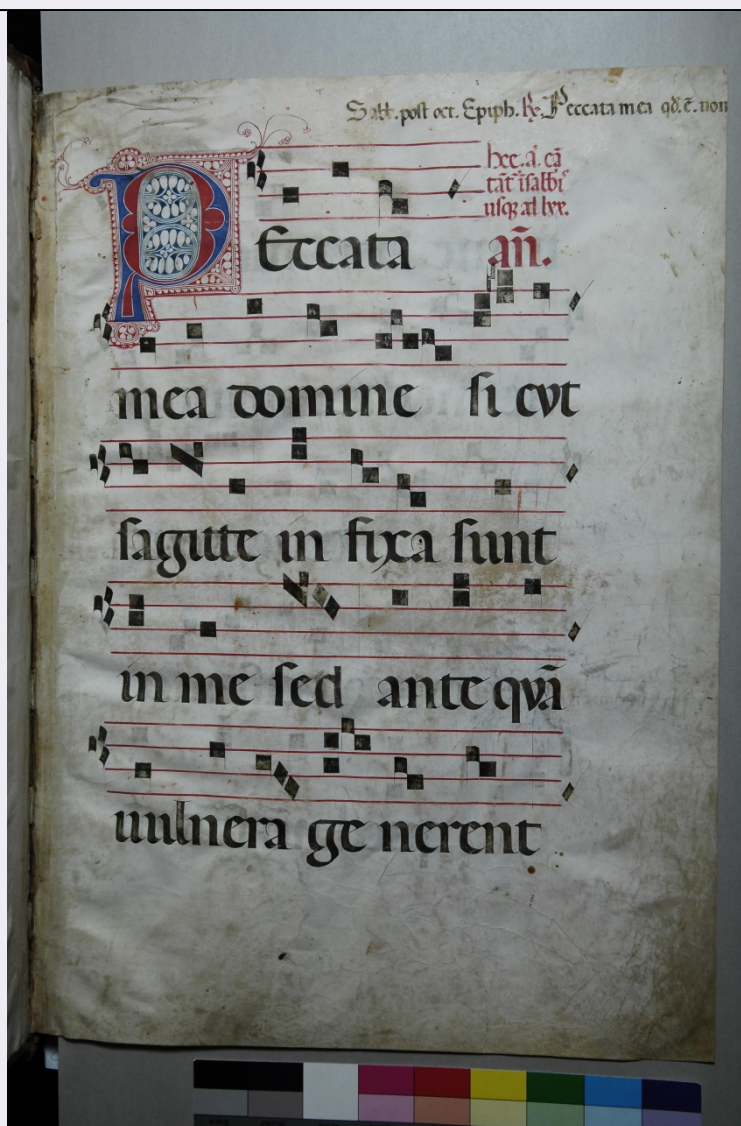 Sabb. post oct. Epiph. R. Peccata mea qđ. ē. non
hec. a. cā
tāt isabbī
usqꝫ ad lxx.
PEccata añ.
mea domine si cut
sagitte in fixa sunt
in me sed ante quā
uulnera ge nerent